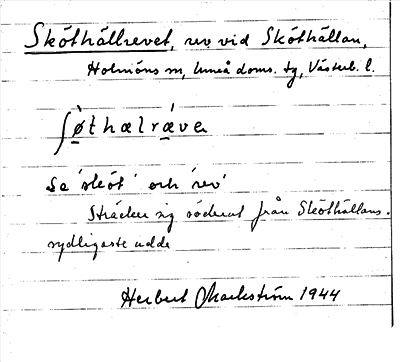 Sköthällrevet, rev vid Sköthällan,
Holmöns sn, Umeå doms. tg, Västerb. l.
ʃø̀thælræ̀ve
Se 'sköt' och 'rev'
Sträcker sig söderut från Sköthällans
sydligaste udde
Herbert Markström 1944